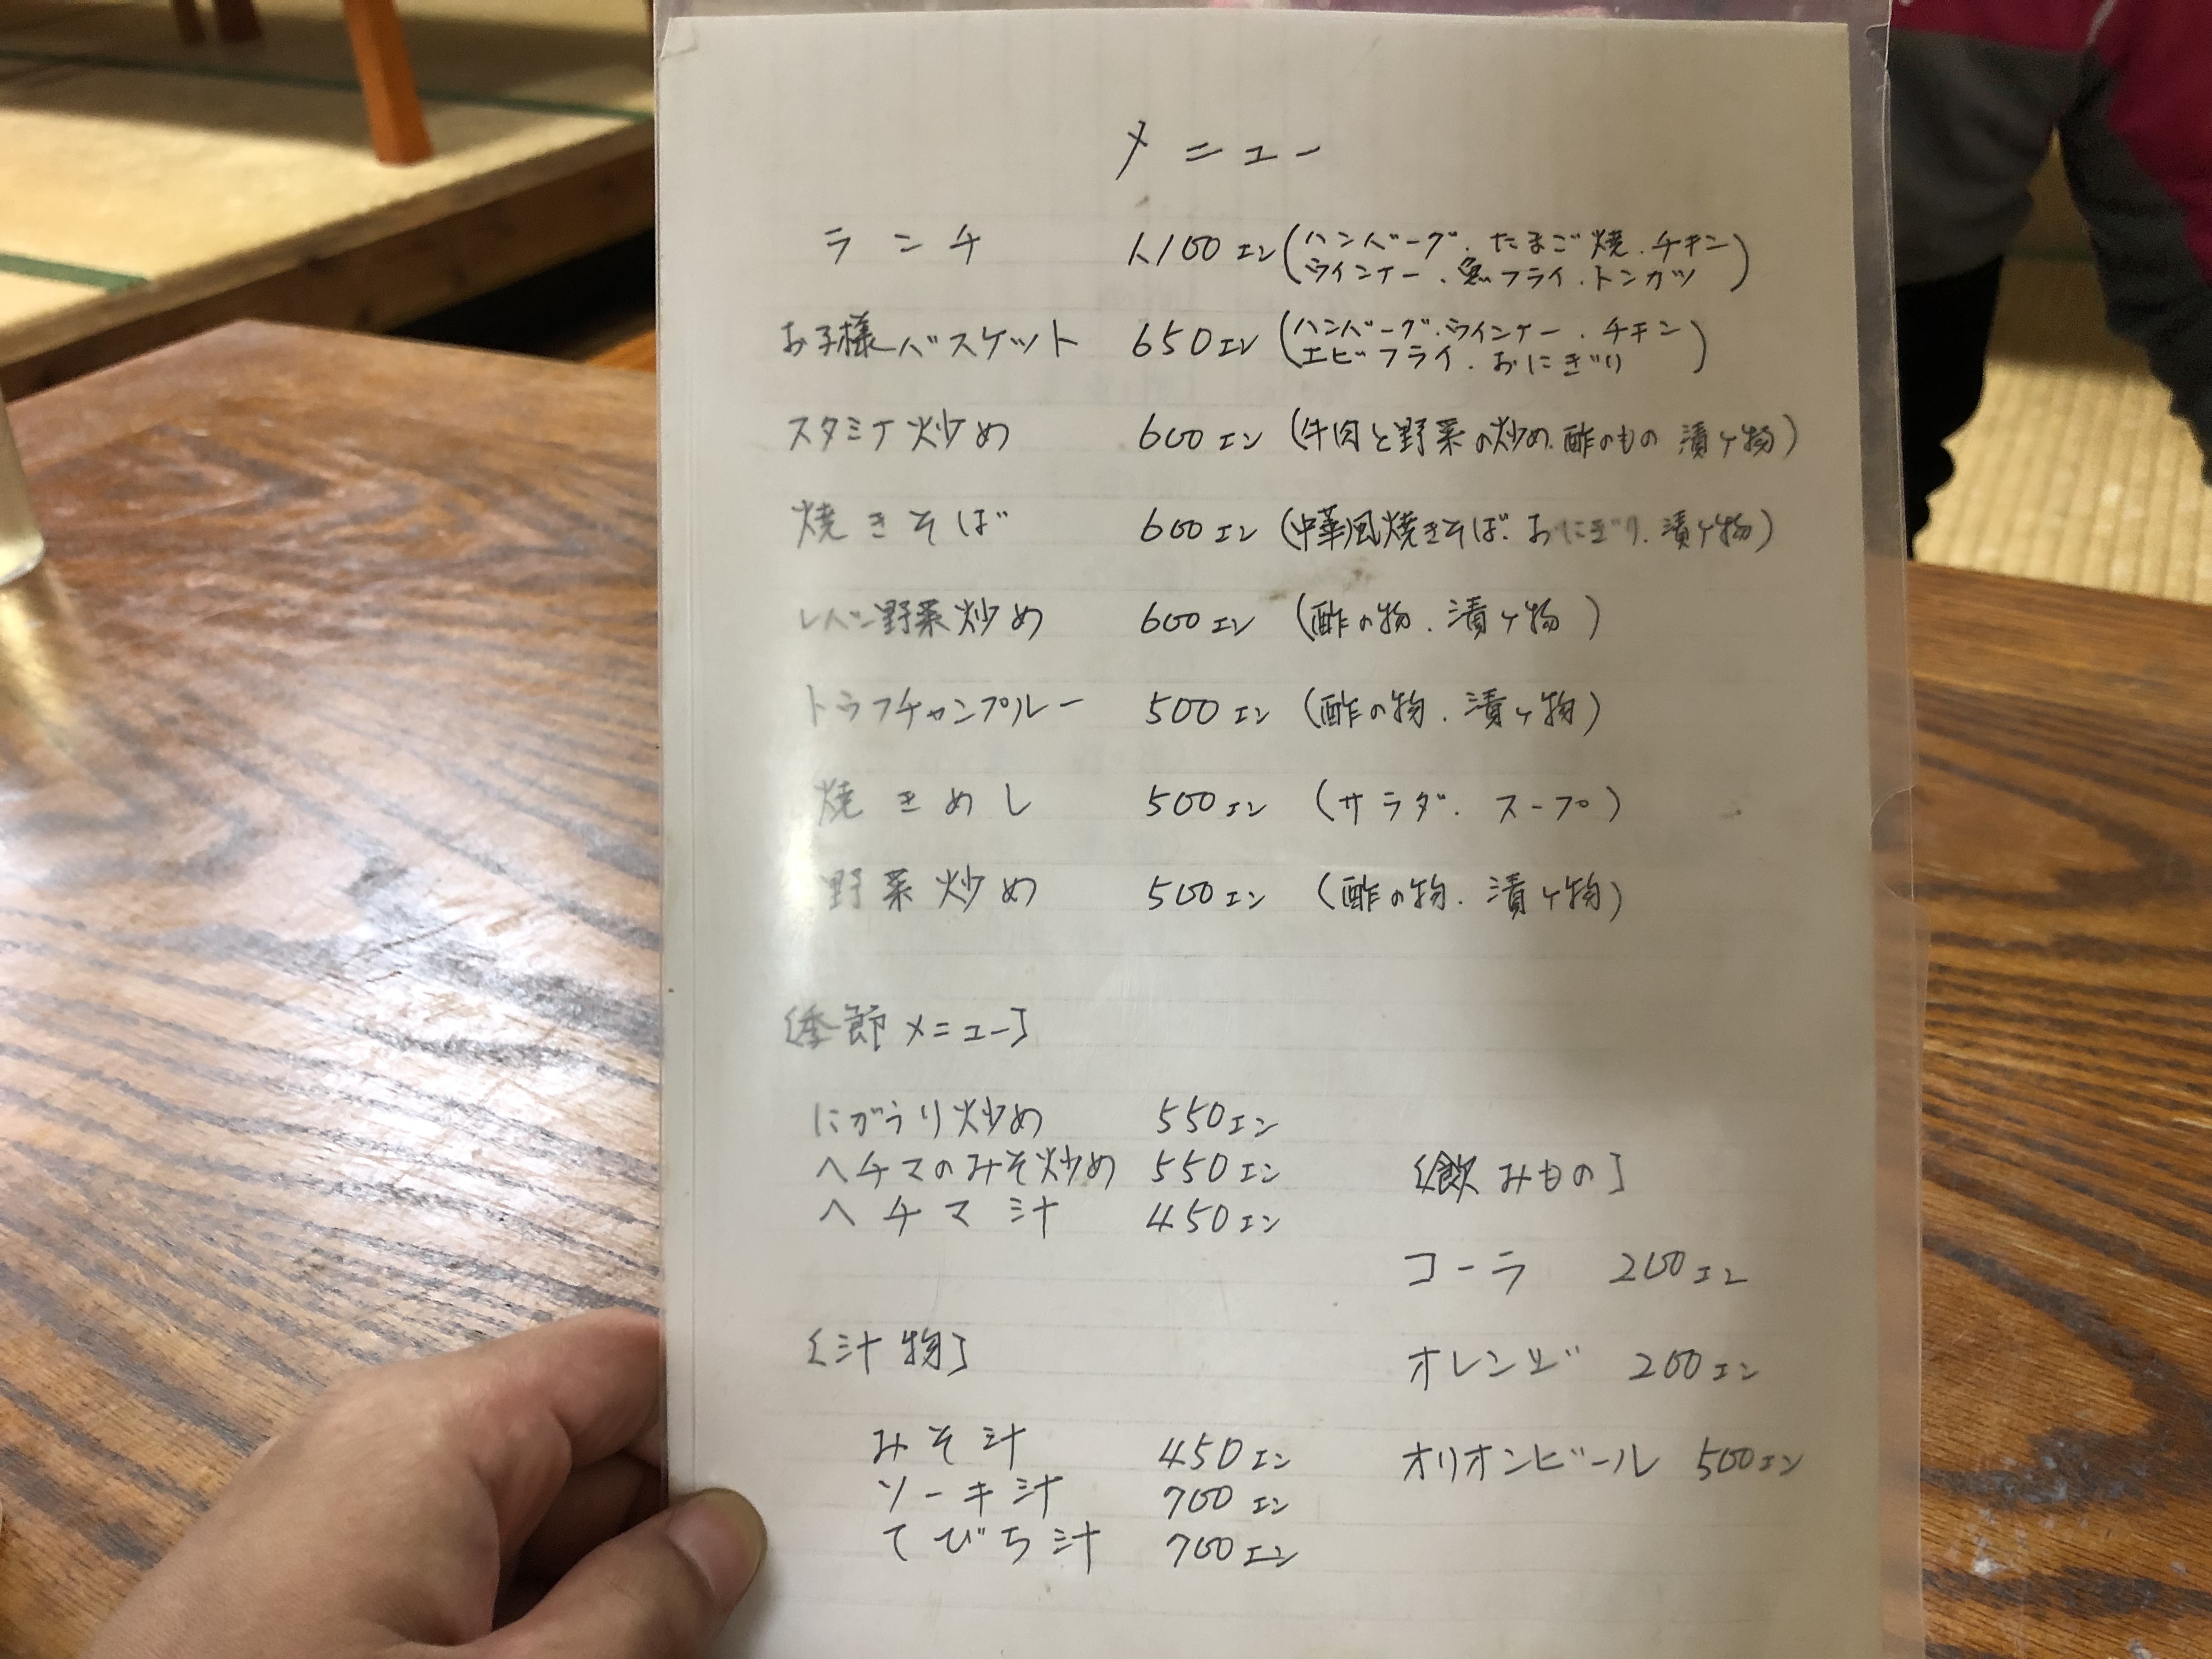 メニュー
ランチ 1,100エン (ハンバーグ.たまご焼.チキン
ウインナー.魚フライ.トンカツ)
お子様バスケット 650エン (ハンバーグ.ウインナー.チキン
エビフライ.おにぎり)
スタミナ炒め 600エン (牛肉と野菜の炒め.酢のもの 漬ケ物)
焼きそば 600エン (中華風焼きそば.おにぎり.漬ケ物)
レバー野菜炒め 600エン (酢の物.漬ケ物)
トウフチャンプルー 500エン (酢の物.漬ケ物)
焼きめし 500エン (サラダ.スープ)
野菜炒め 500エン (酢の物.漬ケ物)
[季節メニュー]
にがうり炒め 550エン
ヘチマのみそ炒め 550エン
ヘチマ汁 450エン
[汁物]
みそ汁 450エン
ソーキ汁 700エン
てびち汁 700エン
[飲みもの]
コーラ 200エン
オレンジ 200エン
オリオンビール 500エン